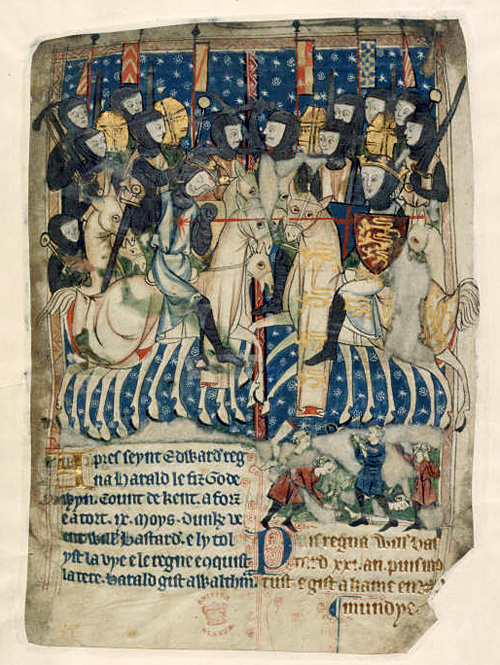 Apres seynt Edward reg
na harald le fiz Gode
wyn. Count de kent. a forz
e a tort. ix. Moys. dunk ve
ent Will bastard. e ly tol
yst la vye e le regne enquist
la tere. harald gist a Waltham
Puis regna Will bas
tard. xxi. an. puis mo
rust e gist a kame en
mundye
BRITISH
MUSEUM